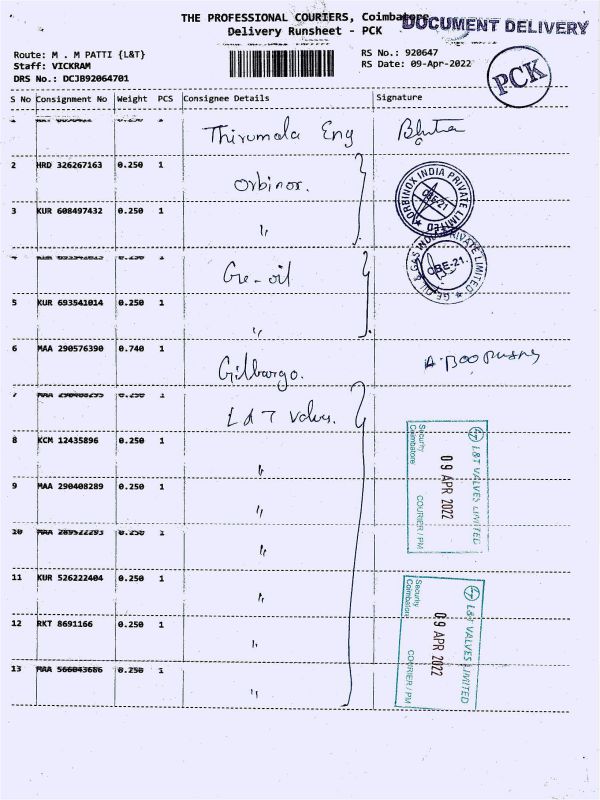 THE PROFESSIONAL COURIERS, Coimbatore
DOCUMENT DELIVERY
Delivery Runsheet - PCK
Route: M . M PATTI {L&T}
Staff: VICKRAM
DRS No.: DCJB92064701
RS No.: 920647
RS Date: 09-Apr-2022
PCK
S No Consignment No Weight PCS Consignee Details Signature
Thirumala Eng
2 HRD 326267163 0.250 1 Orbinox.
ORBINOX INDIA PRIVATE LIMITED
3 KUR 608497432 0.250 1 "
Ge-oil
GE OIL & GAS INDIA PRIVATE LIMITED
CBE-21.
5 KUR 693541014 0.250 1 "
6 MAA 290576390 0.740 1 Gilbargo.
7 0.250 1 L&T Valves.
8 KCM 12435896 0.250 1 "
9 MAA 290408289 0.250 1 "
L&T VALVES LIMITED
09 APR 2022
Security
Coimbatore
COURIER / PM
10 MAA 0.250 1 "
11 KUR 526222404 0.250 1 "
12 RKT 8691166 0.250 1 "
13 MAA 566043686 0.250 1 "
L&T VALVES LIMITED
09 APR 2022
Security
Coimbatore
COURIER / PM